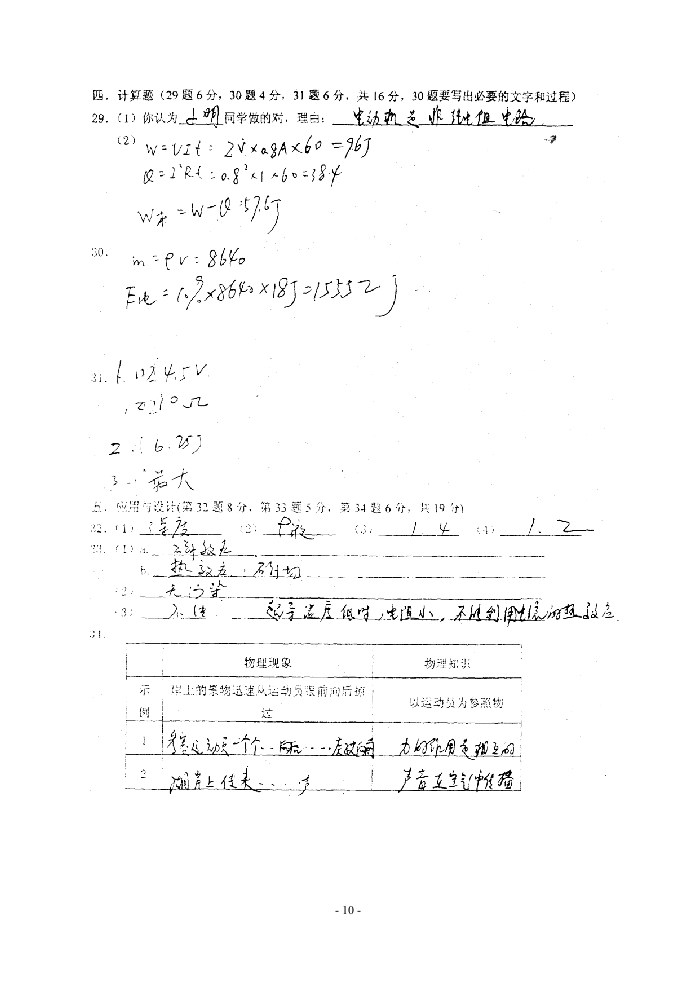 四．计算题（29题6分，30题4分，31题6分，共16分，30题要写出必要的文字和过程）
29.（1）你认为 小明 同学做的对，理由： 电动机是非纯电阻电路
（2） W=UIt=2V×0.8A×60=96J
Q=I²Rt=0.8²×1×60=38.4
W=W-Q=57.6J
30.
m=ρv=8640
=10%×8640×18J=15552J
31. 1. 4.5V
10Ω
2. 6.75J
3. 最大
五．应用与设计(第32题8分，第33题5分，第34题6分，共19分)
32.（1） 密度 （2） ρ液 （3） 1 4 （4） 1.2
33.（1）a.
b. 热效应
（2） 无污染
（3） 不佳 超导温度低时，电阻小，不能利用电流的热效应
34.
物理现象 物理知识
示例 岸上的景物迅速从运动员眼前向后掠过 以运动员为参照物
1 运动员一个个... 力的作用是相互的
2 湖岸上传来...声 声音在空气中传播
- 10 -